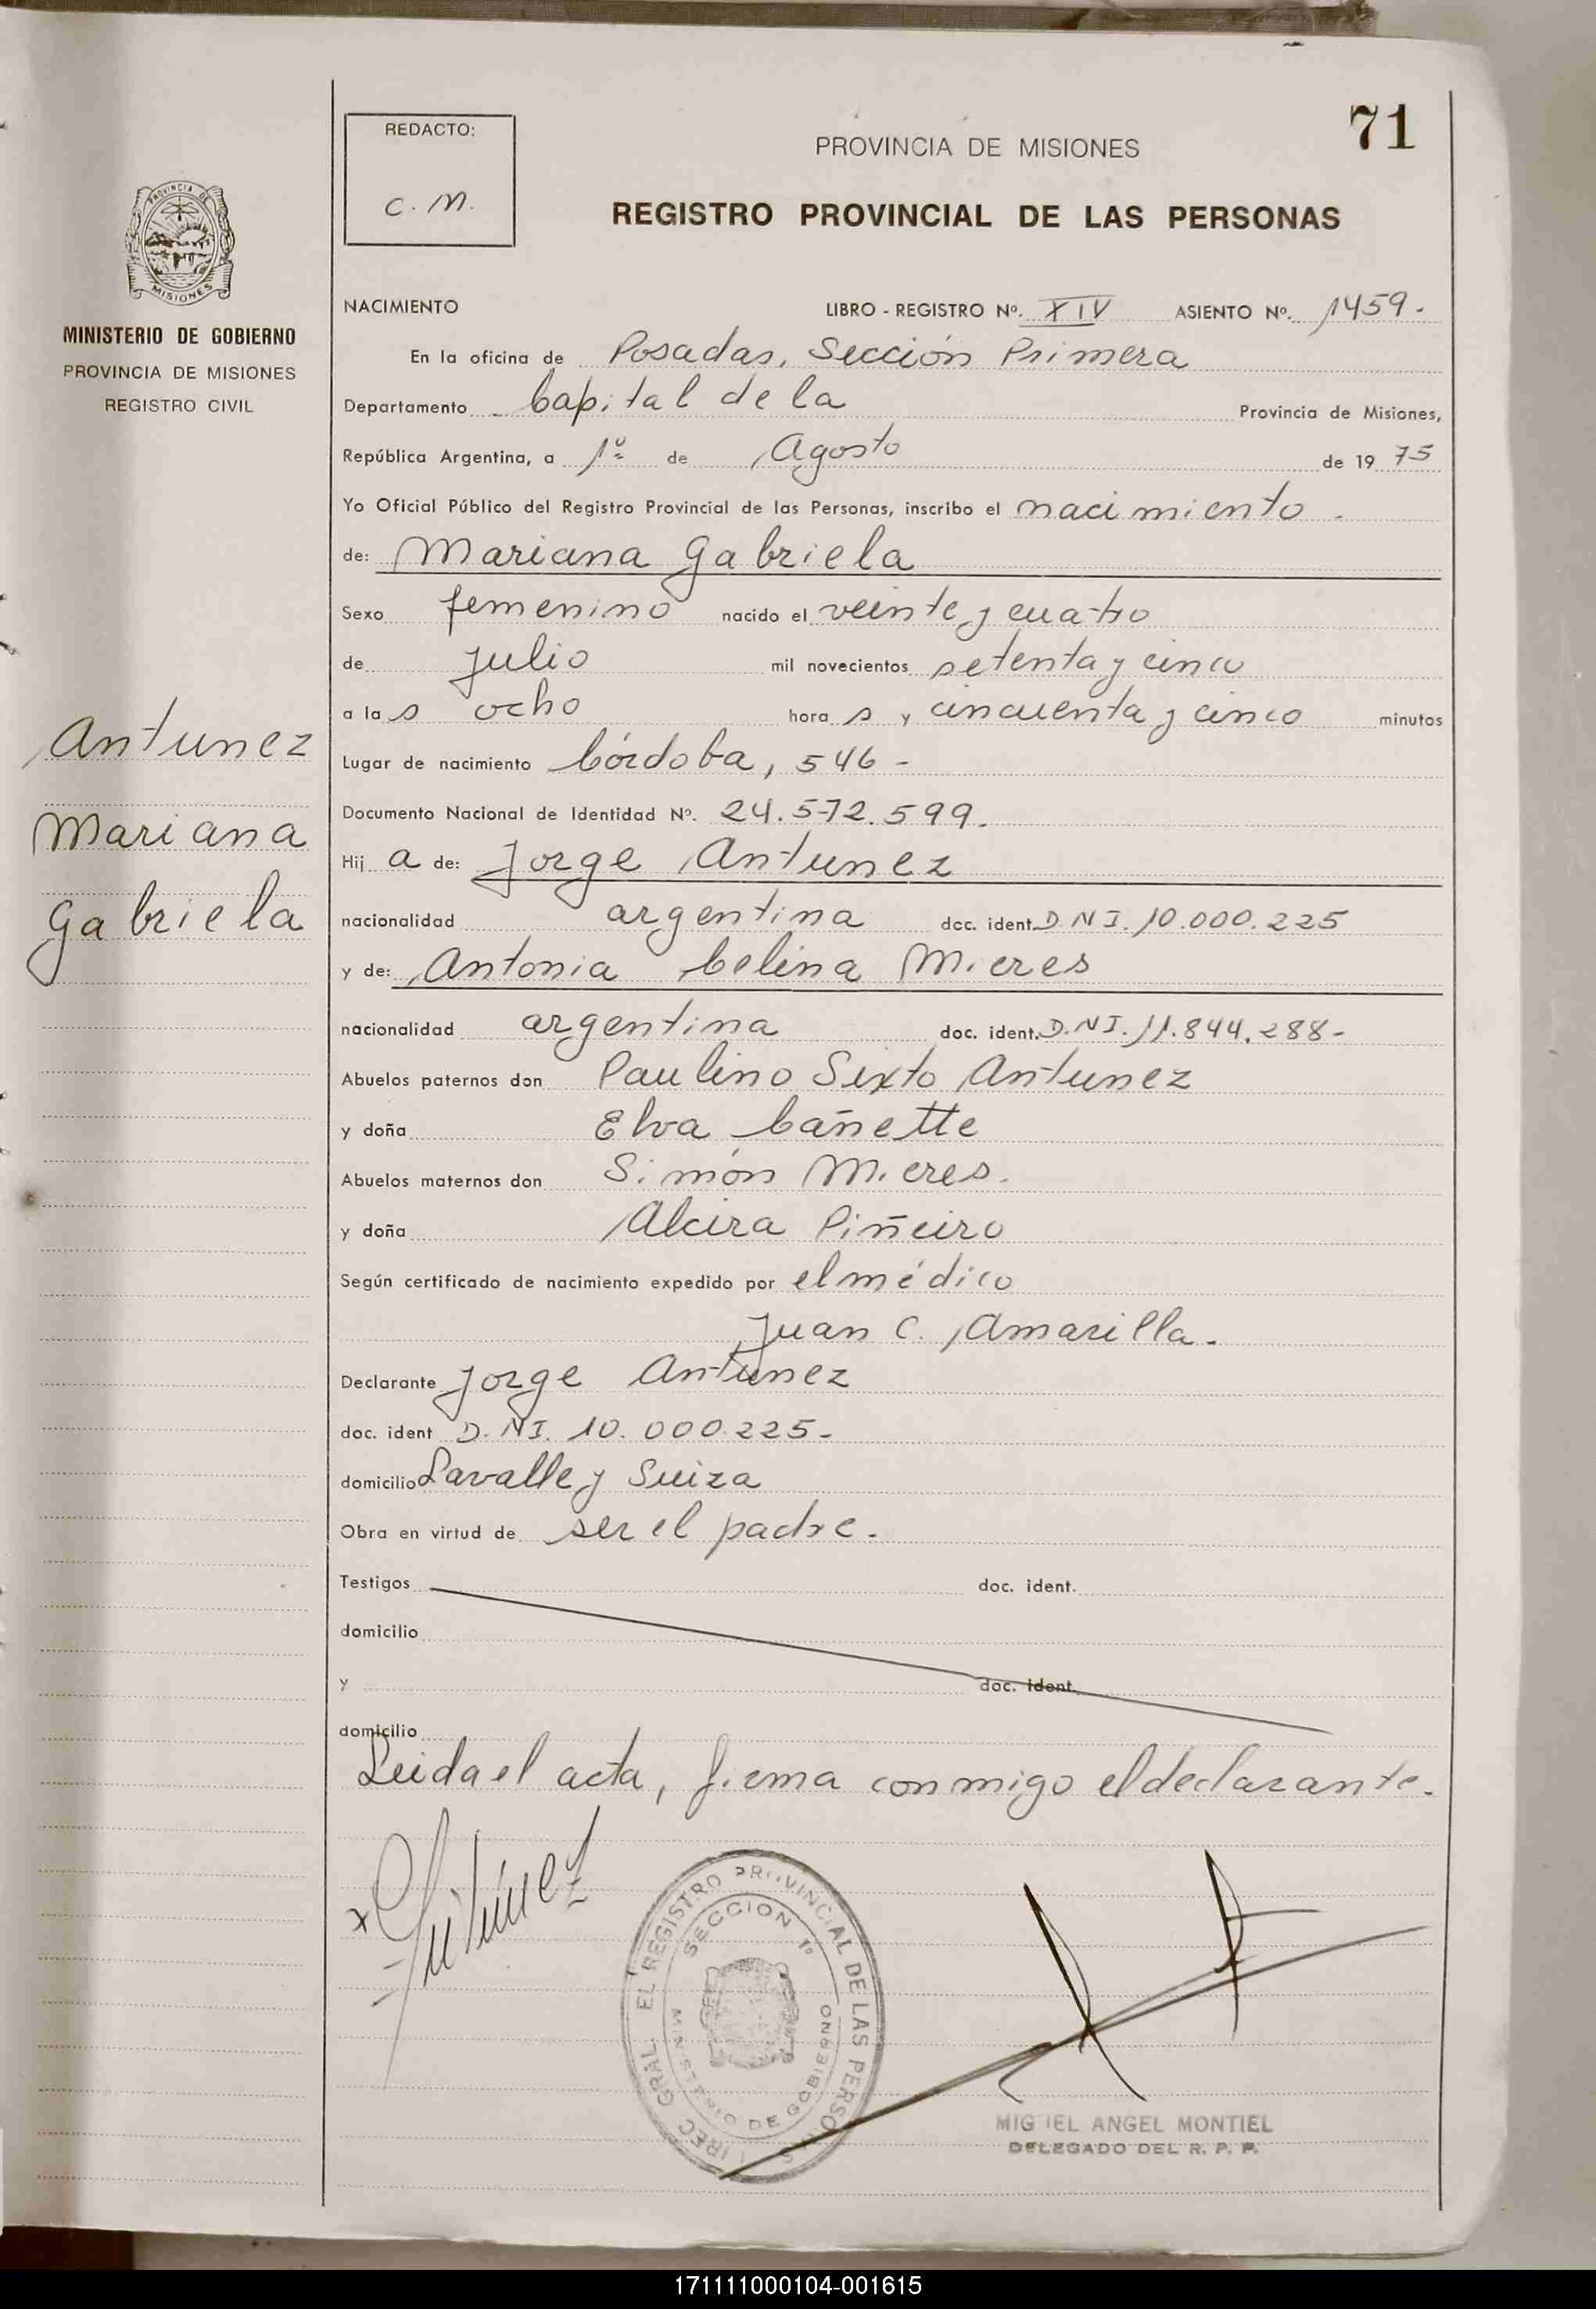 71
REDACTO:
C. M.
PROVINCIA DE MISIONES
REGISTRO PROVINCIAL DE LAS PERSONAS
PROVINCIA DE
MISIONES
MINISTERIO DE GOBIERNO
PROVINCIA DE MISIONES
REGISTRO CIVIL
Antunez
Mariana
Gabriela
NACIMIENTO LIBRO - REGISTRO Nº. XIV ASIENTO Nº. 1459.
En la oficina de Posadas, Sección Primera
Departamento Capital de la Provincia de Misiones,
República Argentina, a 1º de Agosto de 19 75
Yo Oficial Público del Registro Provincial de las Personas, inscribo el nacimiento.
de: Mariana Gabriela
Sexo femenino nacido el veinte y cuatro
de julio mil novecientos setenta y cinco
a las ocho horas y cincuenta y cinco minutos
Lugar de nacimiento Córdoba, 546 -
Documento Nacional de Identidad Nº. 24.572.599.
Hija de: Jorge Antunez
nacionalidad argentina doc. ident. D.N.I. 10.000.225
y de: Antonia Celina Mieres
nacionalidad argentina doc. ident. D.N.I. 11.844.288-
Abuelos paternos don Paulino Sixto Antunez
y doña Elva Cañette
Abuelos maternos don Simón Mieres.
y doña Alcira Piñeiro
Según certificado de nacimiento expedido por el médico
Juan C. Amarilla.
Declarante Jorge Antunez
doc. ident D.NI. 10.000.225-
domicilio Lavalle y Suiza
Obra en virtud de ser el padre.
Testigos doc. ident.
domicilio
y doc. ident.
domicilio
Leida el acta, firma conmigo el declarante.
x Antúnez
DIREC. GRAL. DEL REGISTRO PROVINCIAL DE LAS PERSONAS
SECCION 1º
MINISTERIO DE GOBIERNO
MIGUEL ANGEL MONTIEL
DELEGADO DEL R. P. P.
171111000104-001615